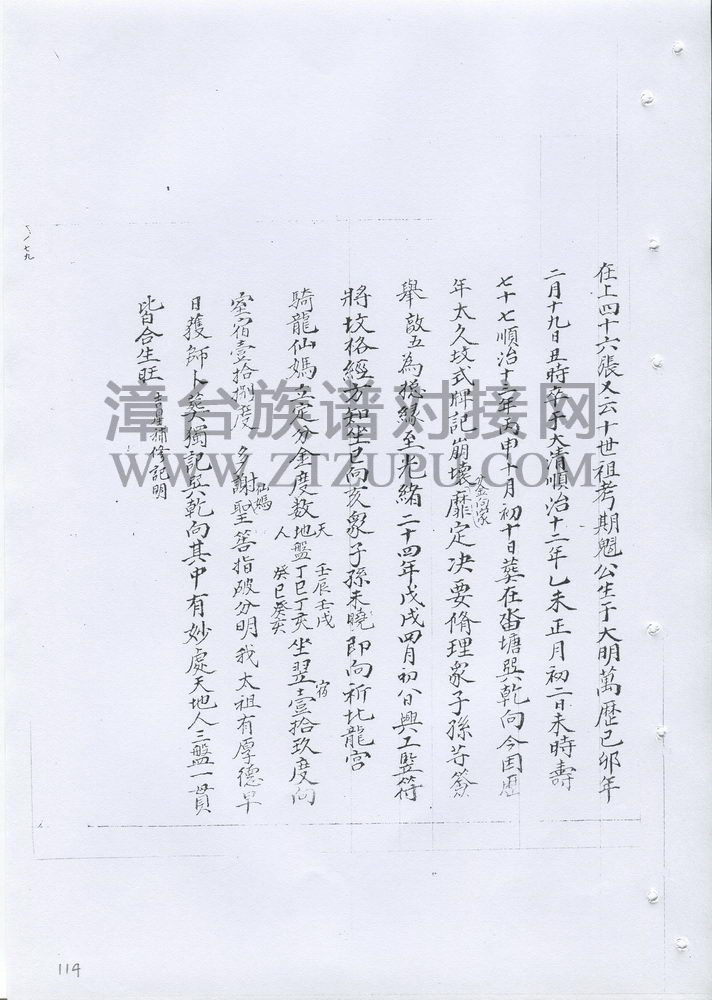 在上四十六張又云十世祖考期魁公生于大明萬歷己卯年
二月十九日丑時卒于大清順治十二年乙未正月初二日未時壽
七十七順治十三年丙申十月初十日葬在畓塘巽乾向今因歷
年太久坟式碑記崩壞靡定决要脩理衆子孫等簽
舉啟五為總緣至光緒二十四年戊戌四月初八日興工竪符
將坟格經方知坐巳向亥衆子孫未曉即向祈北龍宫
騎龍仙媽立定分金度数天地人盤壬辰壬戌丁巳丁亥癸巳癸亥坐翌宿壹拾玖度向
室宿壹拾捌度多謝仙媽聖筶指破分明我太祖有厚德早
日獲師卜葬獨記巽乾向其中有妙處天地人三盤一貫
皆合生旺吉星補修記明
七九
114
漳台族谱对接网
WWW.ZTZUPU.COM